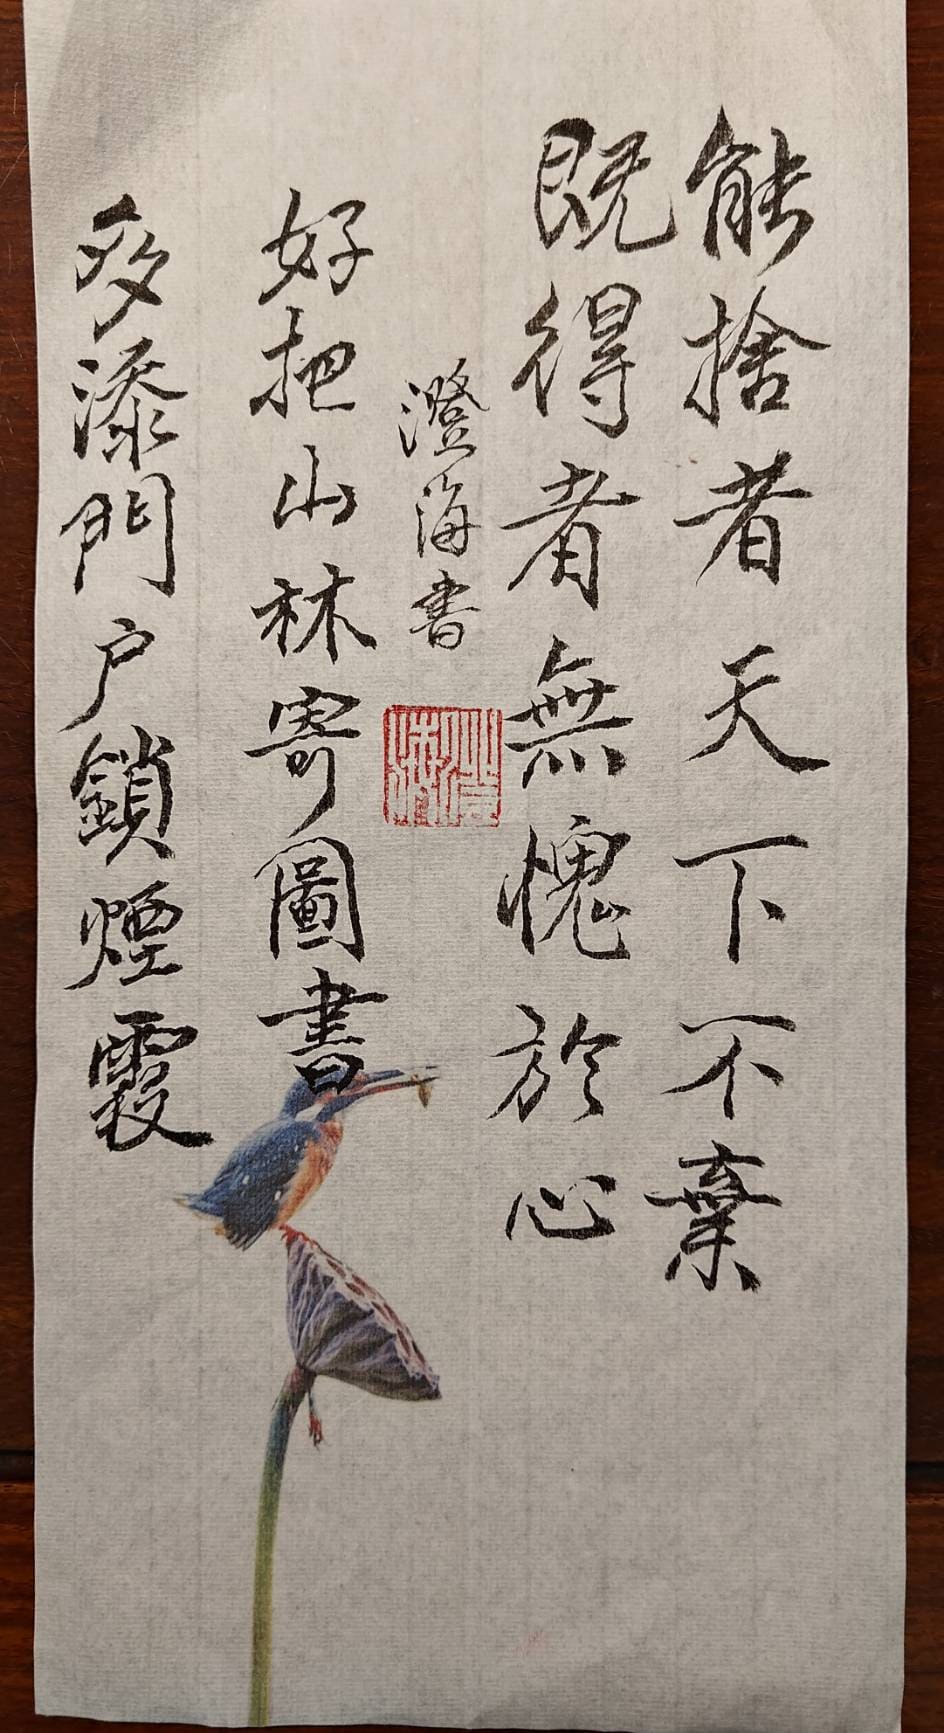 能捨者天下不棄
既得者無愧於心
澄海書
好把山林寄圖書
多添門户鎖煙霞